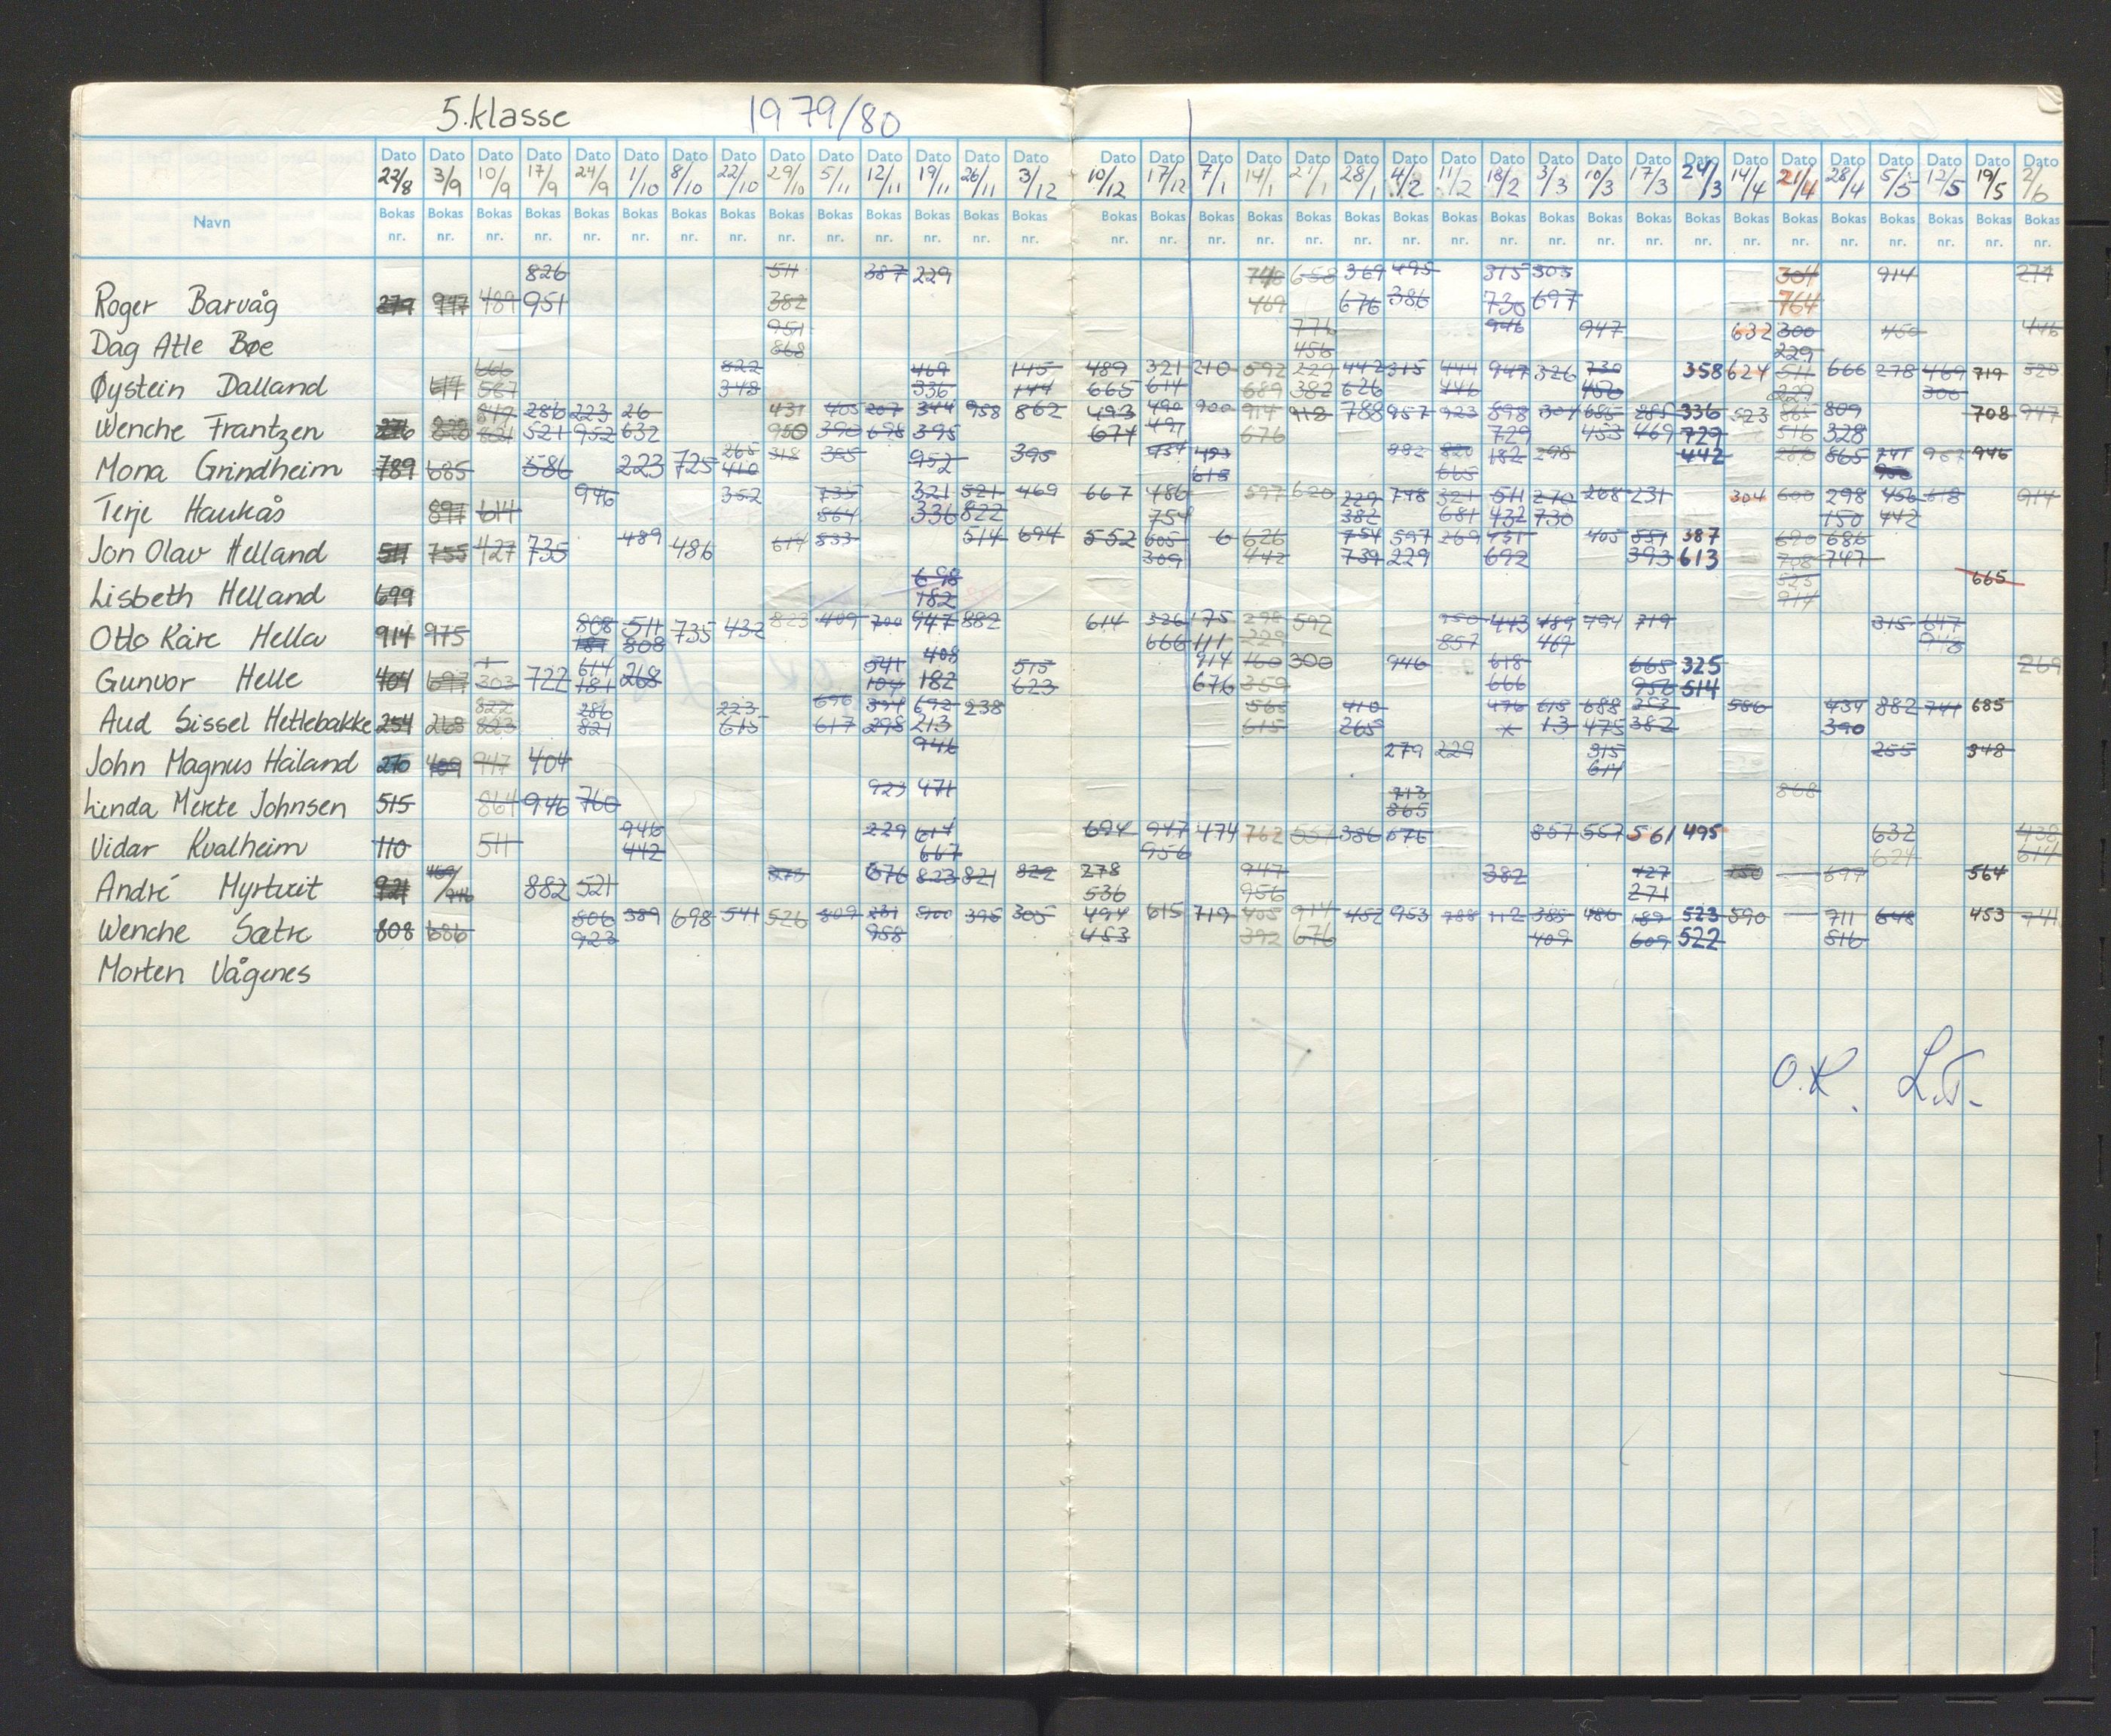 5.klasse 1979/80
Dato Dato Dato Dato Dato Dato Dato Dato Dato Dato Dato Dato Dato Dato Dato Dato Dato Dato Dato Dato Dato Dato Dato Dato Dato Dato Dato Dato Dato Dato Dato Dato Dato Dato
22/8 3/9 10/9 17/9 24/9 1/10 8/10 22/10 29/10 5/11 12/11 19/11 26/11 3/12 10/12 17/12 7/1 14/1 21/1 28/1 4/2 11/2 18/2 3/3 10/3 17/3 24/3 14/4 21/4 28/4 5/5 12/5 19/5 2/6
Navn Bokas Bokas Bokas Bokas Bokas Bokas Bokas Bokas Bokas Bokas Bokas Bokas Bokas Bokas Bokas Bokas Bokas Bokas Bokas Bokas Bokas Bokas Bokas Bokas Bokas Bokas Bokas Bokas Bokas Bokas Bokas Bokas Bokas Bokas
nr. nr. nr. nr. nr. nr. nr. nr. nr. nr. nr. nr. nr. nr. nr. nr. nr. nr. nr. nr. nr. nr. nr. nr. nr. nr. nr. nr. nr. nr. nr. nr. nr. nr.
826 511 387 229 658 369 495 315 303 304 914 274
Roger Barvåg 279 947 489 951 382 469 676 386 730 697 764
951 946 947 632 300 446
Dag Atle Bøe 868 456 229
666 822 469 145 489 321 210 592 229 442 315 444 947 326 730 358 624 511 666 278 469 719 520
Øystein Dalland 617 567 348 336 144 665 614 689 382 626 446 229 300
286 223 26 431 405 207 344 958 862 493 490 900 914 918 788 957 923 898 304 685 885 336 523 865 809 708 947
Wenche Frantzen 521 952 632 950 390 698 395 674 491 676 729 453 469 729 516 328
265 318 385 395 934 493 882 820 182 298 442 865 741 957 946
Mona Grindheim 789 685 586 223 725 410 952 618 665
946 352 735 321 521 469 667 486 597 620 229 798 321 511 270 268 231 304 600 298 456 618 914
Terje Haukås 897 614 864 336 822 754 382 681 432 730 150 442
489 614 833 514 694 552 605 6 626 754 597 269 431 405 551 387 690 686
Jon Olav Helland 511 755 427 735 486 309 442 739 229 692 393 613 708 747
698 523 665
Lisbeth Helland 699 182 914
808 511 823 409 700 947 882 614 326 175 298 592 950 443 489 794 719 315 647
Otto Kåre Hella 914 975 808 735 432 666 111 229 857 467
614 541 408 515 914 160 300 946 618 665 325 269
Gunvor Helle 404 697 303 722 181 268 104 182 623 676 359 666 956 514
822 286 223 696 394 692 238 565 410 496 615 688 253 586 434 882 741 685
Aud Sissel Hetlebakke 254 268 823 821 615 617 298 213 615 265 x 13 475 382 390
946 279 229 315 255 348
John Magnus Håland 210 409 947 404 614
923 471 713 868
Linda Merete Johnsen 515 864 946 760 865
946 229 614 694 947 474 762 557 386 676 857 557 561 495 632 438
Vidar Kvalheim 110 511 442 667 956 624 614
676 823 821 822 278 947 382 427 150 699 564
André Myrtveit 921 882 521 536 956 271
806 389 698 541 526 809 231 900 395 305 494 615 719 405 914 452 953 788 112 385 486 189 523 590 711 648 453 741
Wenche Sætre 808 686 923 958 453 392 676 409 609 522 516
Morten Vågenes
O.K. L.T.